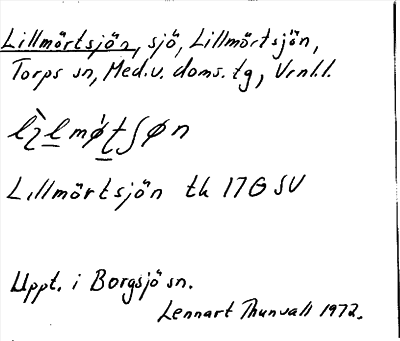 Lillmörtsjön, sjö, Lillmörtsjön,
Torps sn, Med.v. doms. tg, Vrnl.l.
Lillmörtsjön tk 17G SV
Uppt. i Borgsjö sn.
Lennart Thunvall 1972.